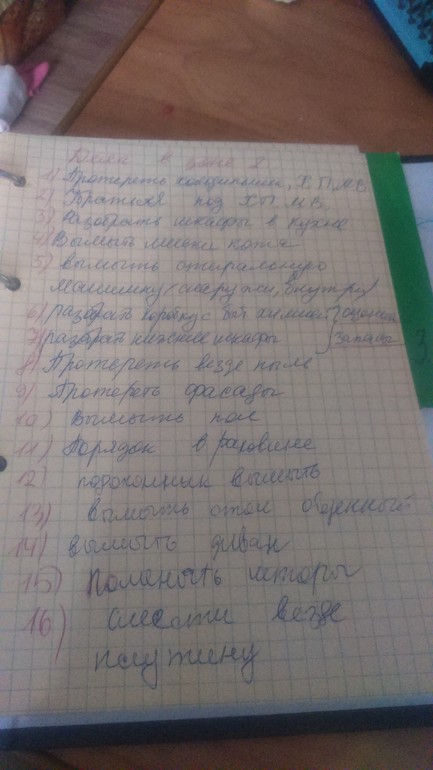 Дела в зоне 2
1) Протереть холодильник, Х.П, МВ
2) Убраться под ХП МВ
3) Разобрать шкафы в кухне
4) Вымыть миски кота
5) вымыть стиральную
машинку (снаружи, внутри)
6) разобрать коробку с быт химией } оценить
7) разобрать нижние шкафы } запасы
8) Протереть везде пыль
9) Протереть фасады
10) Вымыть пол
11) Порядок в раковине
12) подоконник вымыть
13) вымыть стол обеденный
14) вымыть диван
15) Поменять шторы
16) Смести везде
паутину
3